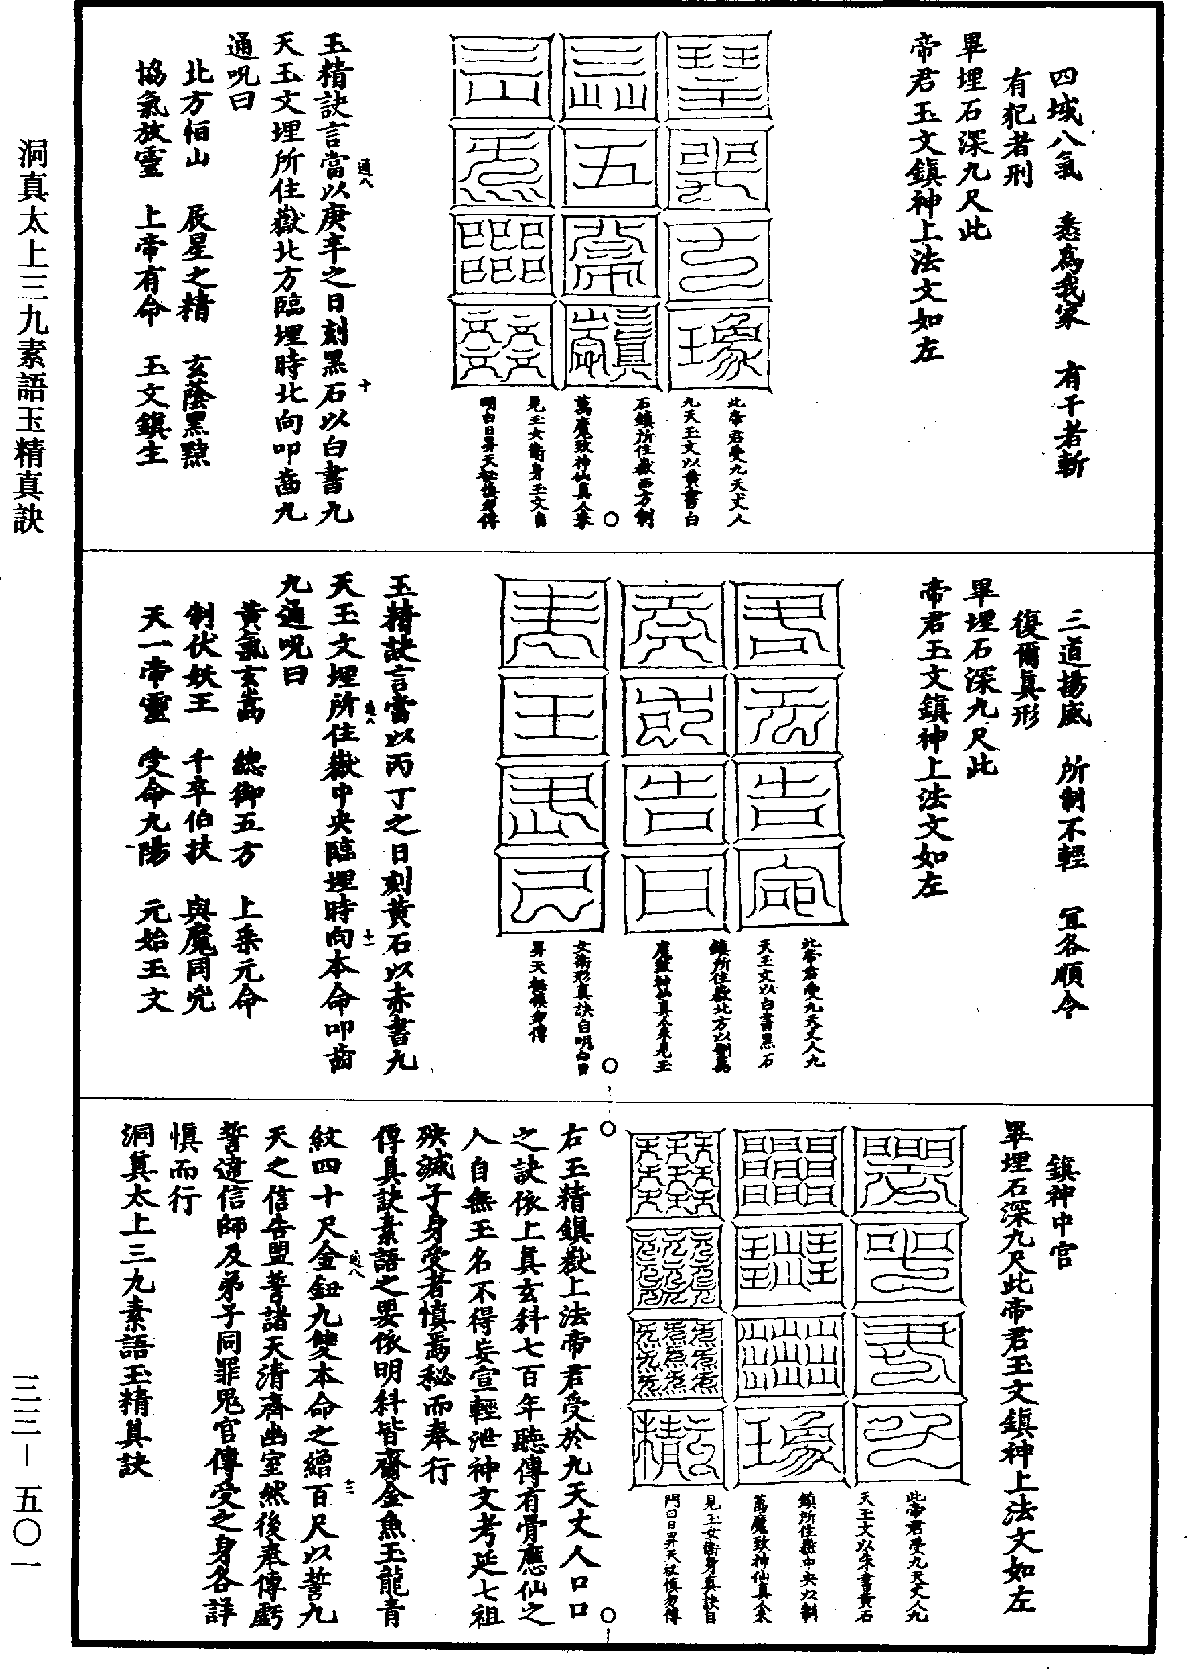 四域八氣　悉爲我家　有干者斬
有犯者刑
畢埋石深九尺此
帝君玉文鎮神上法文如左
此帝君受九天丈人
九天玉文以黃書白
石鎮所住嶽西方制
萬魔致神仙真人來
見玉女衛身玉文自
明白日昇天祕慎勿傳
玉精訣言當以庚辛之日刻黑石以白書九
天玉文埋所住嶽北方臨埋時北向叩齒九
通呪曰
北方恒山　辰星之精　玄蔭黑黯
協氣放靈　上帝有命　玉文鎮生
三道揚威　所制不輕　宜各順令
復爾真形
畢埋石深九尺此
帝君玉文鎮神上法文如左
此帝君受九天丈人九
天玉文以白書黑石
鎮所住嶽北方以制萬
魔致神仙真人來見玉
女衛形真訣自明白日
昇天祕慎勿傳
玉精訣言當以丙丁之日刻黃石以赤書九
天玉文埋所住嶽中央臨埋時向本命叩齒
九通呪曰
黃氣玄嵩　總御五方　上乘元命
制伏妖王　千卒伯扶　與魔同兇
天一帝靈　受命九陽　元始玉文
鎮神中宮
畢埋石深九尺此帝君玉文鎮神上法文如左
此帝君受九天丈人九
天玉文以朱書黃石
鎮所住嶽中央以制
萬魔致神仙真人來
見玉女衛身真訣自
門白日昇天祕慎勿傳
右玉精鎮嶽上法帝君受於九天丈人口口
之訣依上真玄科七百年聽傳有骨應仙之
人自無玉名不得妄宣輕泄神文考延七祖
殃滅子身受者慎焉秘而奉行
傳真訣素語之要依明科皆齎金魚玉龍青
紋四十尺金鈕九雙本命之繒百尺以誓九
天之信告盟誓諸天清齋幽室然後奉傳虧
誓違信師及弟子同罪鬼官傳受之身各詳
慎而行
洞真太上三九素語玉精真訣
洞真太上三九素語玉精真訣
三三—五〇一